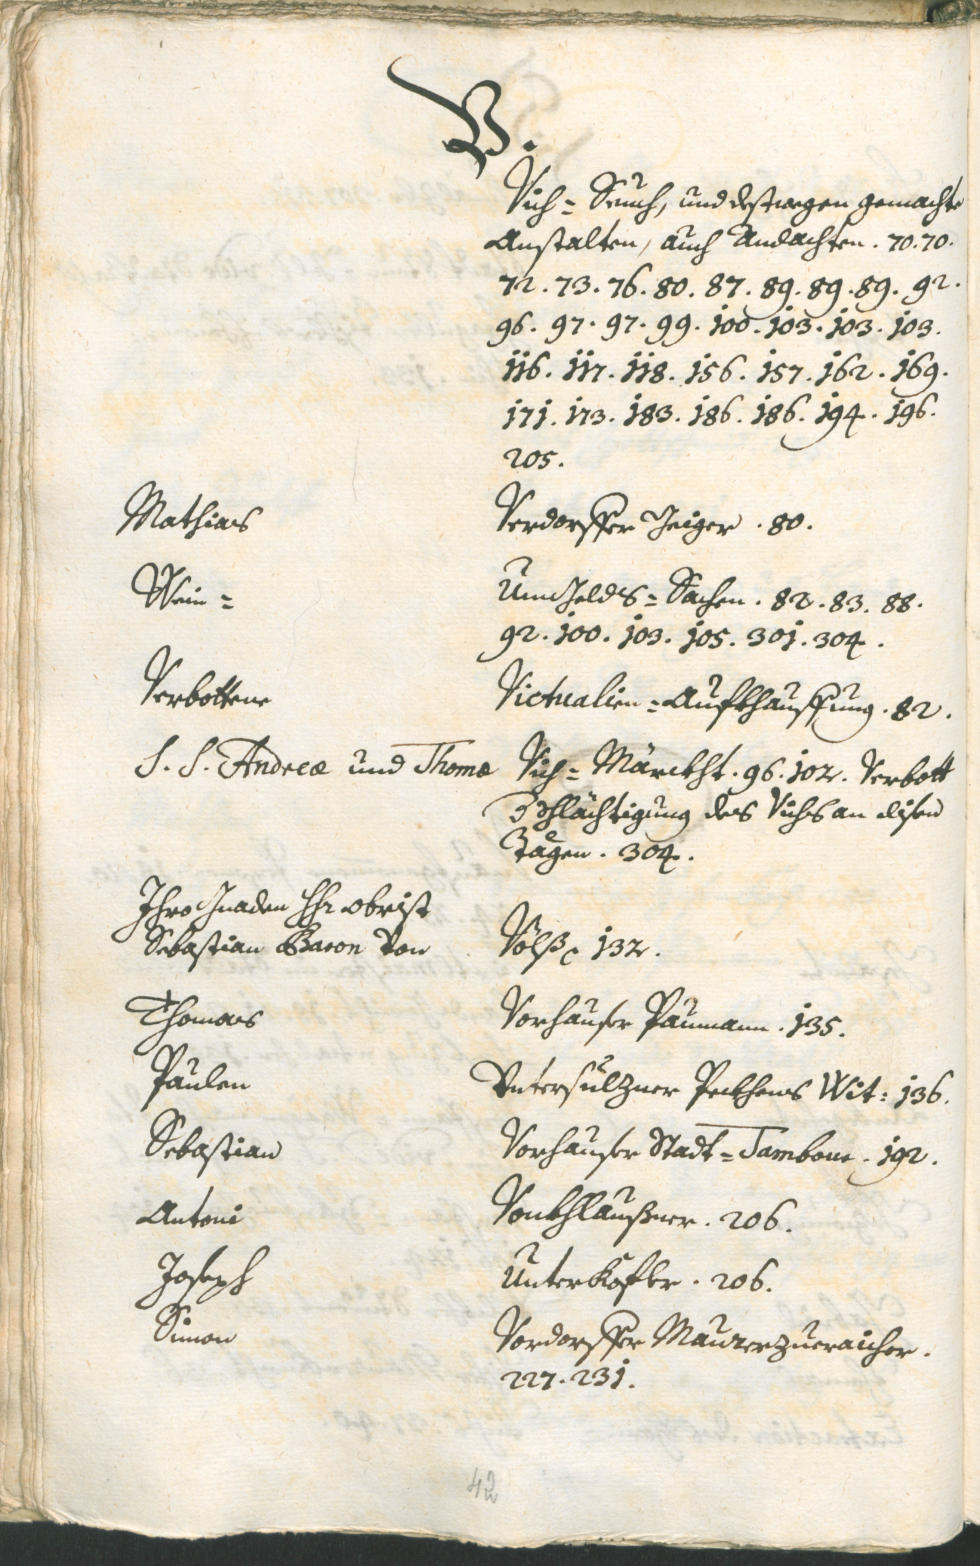 V.
Vich= Seuch, und destwegen gemachte
Anstalten, auch Andachten. 70. 70.
72. 73. 76. 80. 87. 89. 89. 89. 92.
96. 97. 97. 99. 100. 103. 103. 103.
116. 117. 118. 156. 157. 162. 169.
171. 173. 183. 186. 186. 194. 196.
205.
Mathias Verdorffer Geiger. 80.
Wein= Umbgelds= Sachen. 82. 83. 88.
92. 100. 103. 105. 301. 304.
Verbottene Victualien= Aufkhauffung. 82.
S. S. Andreæ und Thomæ Vich= Märckht. 96. 102. Verbott
Schlächtigung des Vichs an disen
Tägen. 304.
Ihro Gnaden Hr Obrist
Sebastian Baron von Völß 132.
Thomas Vorhauser Paumann. 135.
Paulen Untersulzner Pekhens Wit: 136.
Sebastian Vorhauser Stadt= Tambour. 192.
Antoni Vonkhlaußner. 206.
Joseph Unterkofler. 206.
Simon Vordorffer Maurerzueraicher.
227. 231.
42